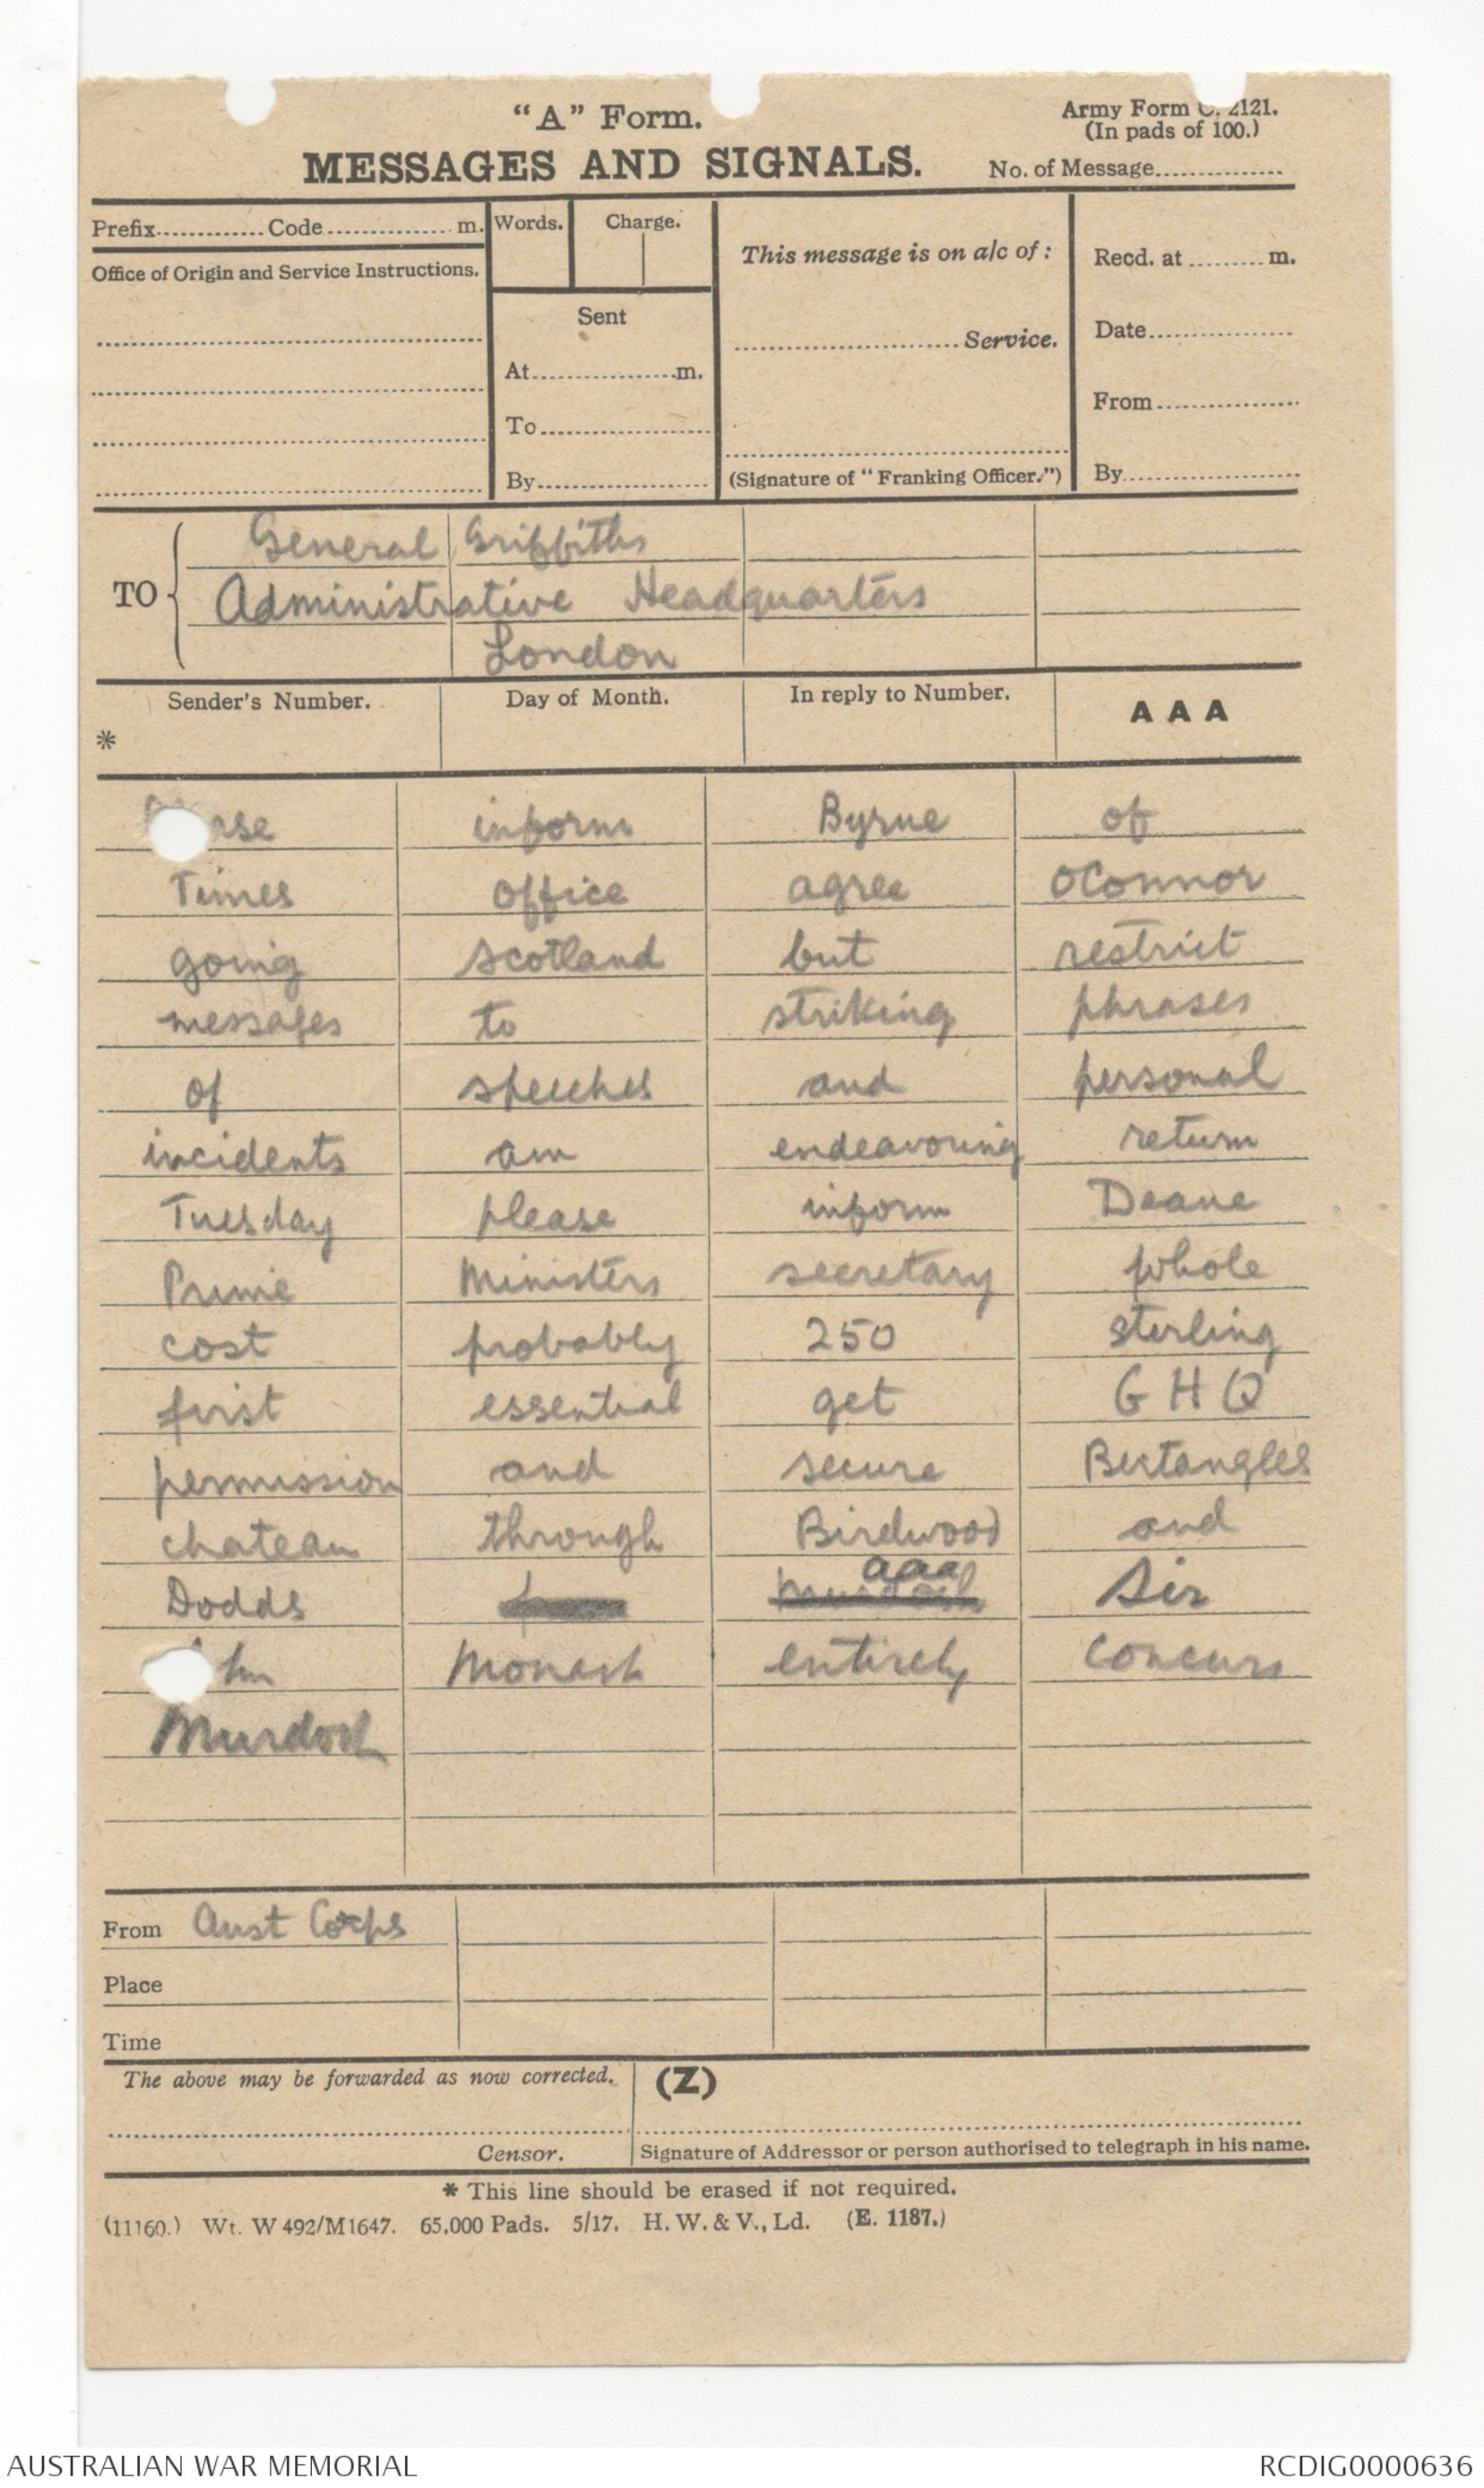 "A" Form.
Army Form C. 2121.
(In pads of 100.)
MESSAGES AND SIGNALS.
No. of Message...............
Prefix............. Code............... m.
Words.
Charge.
This message is on a/c of :
Recd. at ......... m.
Office of Origin and Service Instructions.
Sent
Date.................
........................... Service.
At..................m.
From.................
To......................
By......................
(Signature of "Franking Officer.")
By......................
TO
General Griffiths
Administrative Headquarters
London
Sender's Number.
Day of Month.
In reply to Number.
A A A
*
ase inform Byrne of
Times office agree OConnor
going Scotland but restrict
messages to striking phrases
of speeches and personal
incidents am endeavouring return
Tuesday please inform Deane
Prime Ministers secretary whole
cost probably 250 sterling
first essential get G H Q
permission and secure Bertangles
chateau through Birdwood and
aaa
Dodds Murdoch Sir
hn Monash entirely concurs
Murdoch
From Aust Corps
Place
Time
The above may be forwarded as now corrected.
(Z)
Censor.
Signature of Addressor or person authorised to telegraph in his name.
* This line should be erased if not required.
(11160.) Wt. W 492/M1647. 65,000 Pads. 5/17. H. W. & V., Ld. (E. 1187.)
AUSTRALIAN WAR MEMORIAL
RCDIG0000636